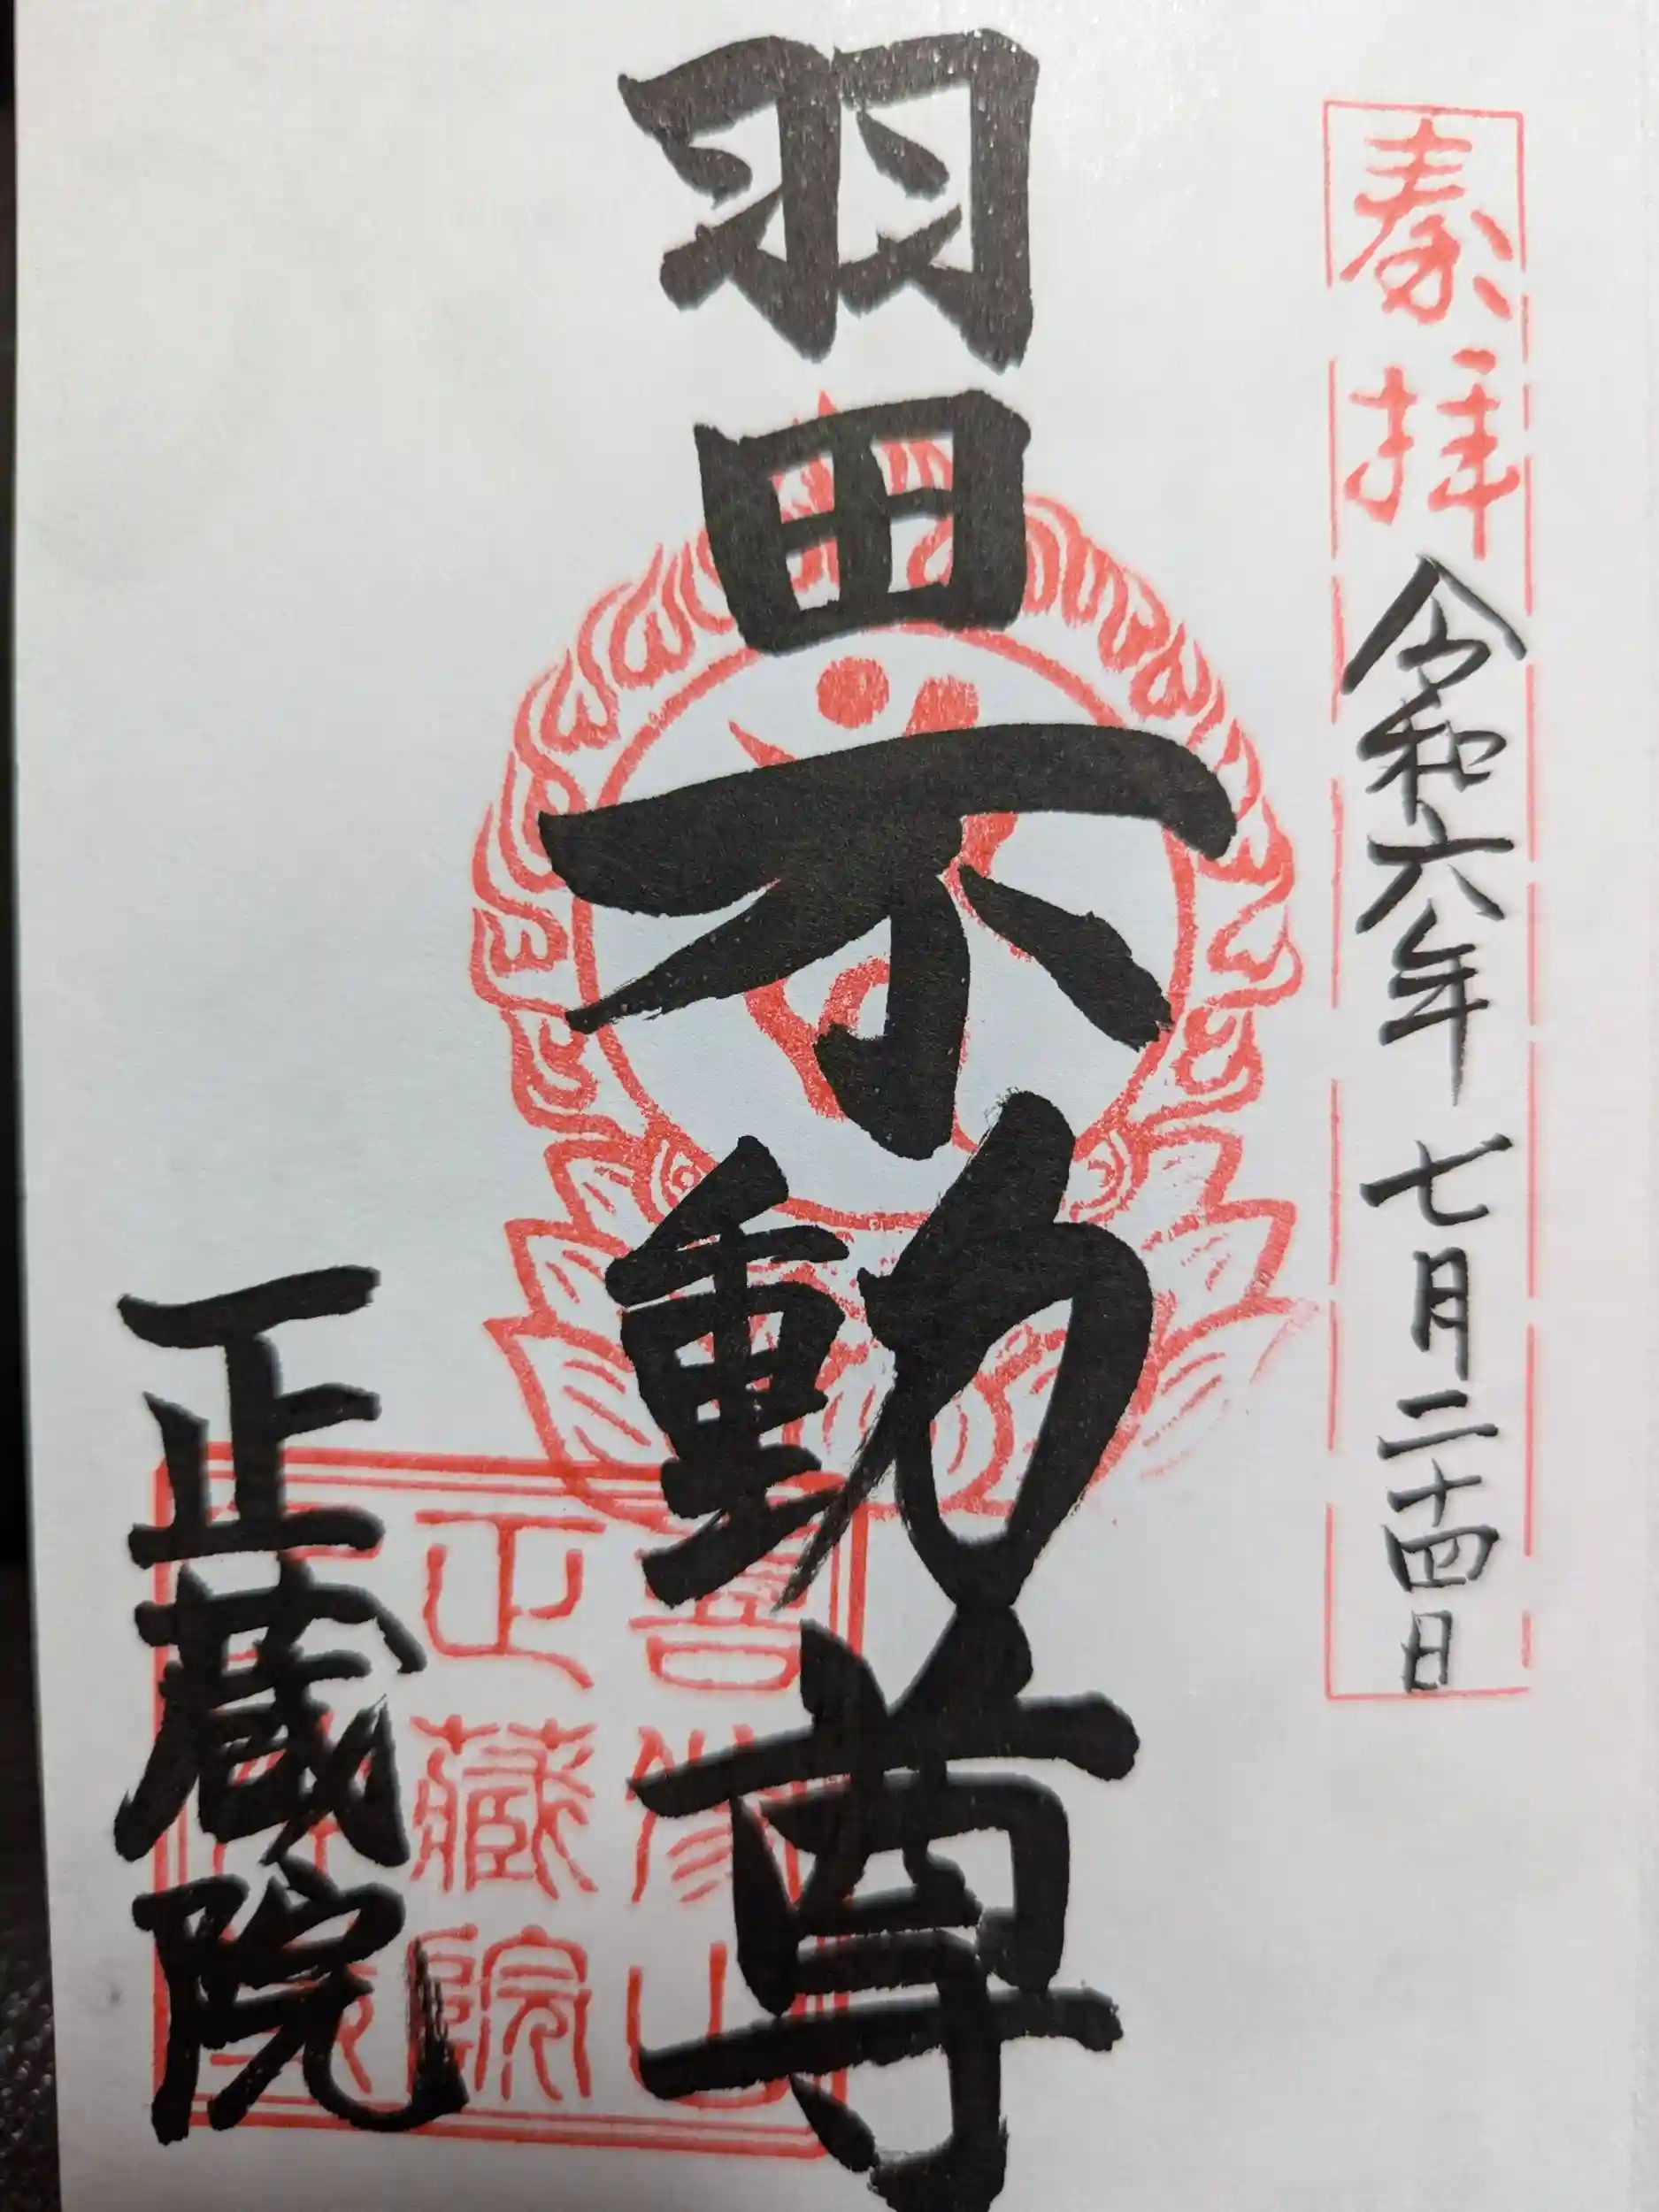 奉拝
令和六年 七月二十四日
羽田不動尊
正蔵院
正藏院